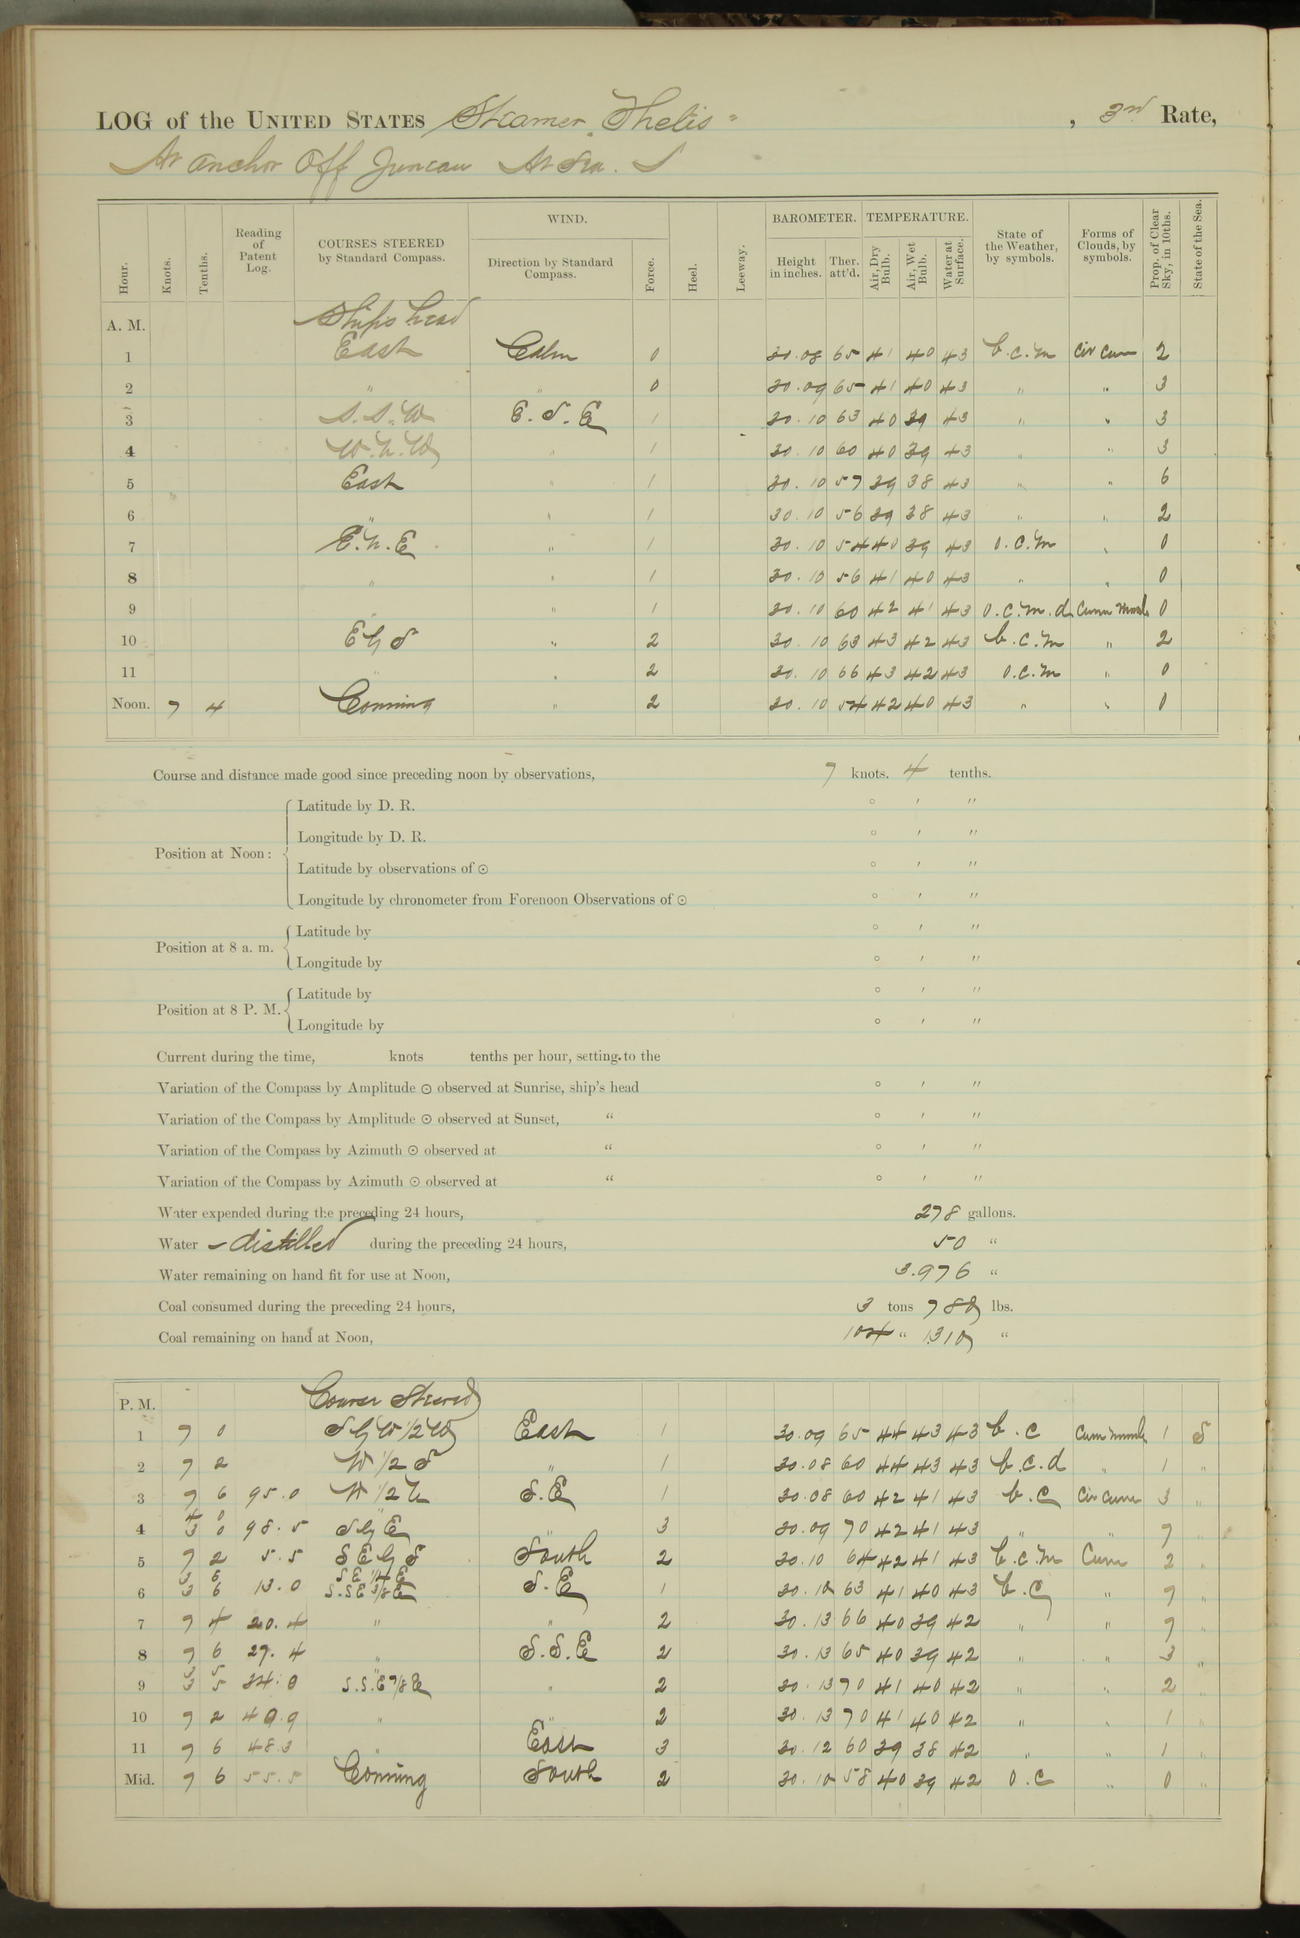 LOG of the UNITED STATES Steamer "Thetis" , 3rd Rate,
At anchor Off Juneau At Sea.
Hour. Knots. Tenths. Reading of Patent Log. COURSES STEERED by Standard Compass. WIND. Direction by Standard Compass. Force. Heel. Leeway. BAROMETER. Height in inches. Ther. att'd. TEMPERATURE. Air, Dry Bulb. Air, Wet Bulb. Water at Surface. State of the Weather, by symbols. Forms of Clouds, by symbols. Prop. of Clear Sky, in 10ths. State of the Sea.
A. M. Ship's head
1 East Calm 0 30.08 65 41 40 43 b.c.m Cir Cum 2
2 " " 0 30.09 65 41 40 43 " " 3
3 S.S.W E.S.E 1 30.10 63 40 39 43 " " 3
4 W.N.W " 1 30.10 60 40 39 43 " " 3
5 East " 1 30.10 57 39 38 43 " " 6
6 " " 1 30.10 56 39 38 43 " " 2
7 E.N.E " 1 30.10 54 40 39 43 o.c.m " 0
8 " " 1 30.10 56 41 40 43 " " 0
9 " " 1 30.10 60 42 41 43 o.c.m.d Cum Nimb 0
10 E by S " 2 30.10 63 43 42 43 b.c.m " 2
11 " " 2 30.10 66 43 42 43 o.c.m " 0
Noon. 7 4 Conning " 2 30.10 54 42 40 43 " " 0
Course and distance made good since preceding noon by observations, 7 knots. 4 tenths.
Position at Noon: Latitude by D. R. ° ′ ″
Longitude by D. R. ° ′ ″
Latitude by observations of ☉ ° ′ ″
Longitude by chronometer from Forenoon Observations of ☉ ° ′ ″
Position at 8 a. m. Latitude by ° ′ ″
Longitude by ° ′ ″
Position at 8 P. M. Latitude by ° ′ ″
Longitude by ° ′ ″
Current during the time, knots tenths per hour, setting to the
Variation of the Compass by Amplitude ☉ observed at Sunrise, ship's head ° ′ ″
Variation of the Compass by Amplitude ☉ observed at Sunset, " ° ′ ″
Variation of the Compass by Azimuth ☉ observed at " ° ′ ″
Variation of the Compass by Azimuth ☉ observed at " ° ′ ″
Water expended during the preceding 24 hours, 278 gallons.
Water distilled during the preceding 24 hours, 50 "
Water remaining on hand fit for use at Noon, 3.976 "
Coal consumed during the preceding 24 hours, 3 tons 780 lbs.
Coal remaining on hand at Noon, 104 " 1310 "
P. M. Courses Steered
1 7 0 S by W 1/2 W East 1 30.09 65 44 43 43 b.c Cum Nimb 1 S
2 7 2 W 1/2 S " 1 30.08 60 44 43 43 b.c.d " 1 "
3 7 6 95.0 W 1/2 N S.E 1 30.08 60 42 41 43 b.c Cir Cum 3 "
4 0
4 3 0 98.5 S by E 3 30.09 70 42 41 43 " " 7 "
5 7 2 5.5 S E by S South 2 30.10 64 42 41 43 b.c.m Cum 2 "
3 6 S E 1/4 E
6 3 6 13.0 S.SE 3/8 E S.E 1 30.10 63 41 40 43 b.c " 7 "
7 7 4 20.4 " " 2 30.13 66 40 39 42 " " 7 "
8 7 6 27.4 " S.S.E 2 30.13 65 40 39 42 " " 3 "
3 5
9 3 5 34.0 S.S.E 7/8 E " 2 30.13 70 41 40 42 " " 2 "
10 7 2 40.9 " " 2 30.13 70 41 40 42 " " 1 "
11 7 6 48.3 " East 3 30.12 60 39 38 42 " " 1 "
Mid. 7 6 55.5 Conning South 2 30.10 58 40 39 42 o.c " 0 "